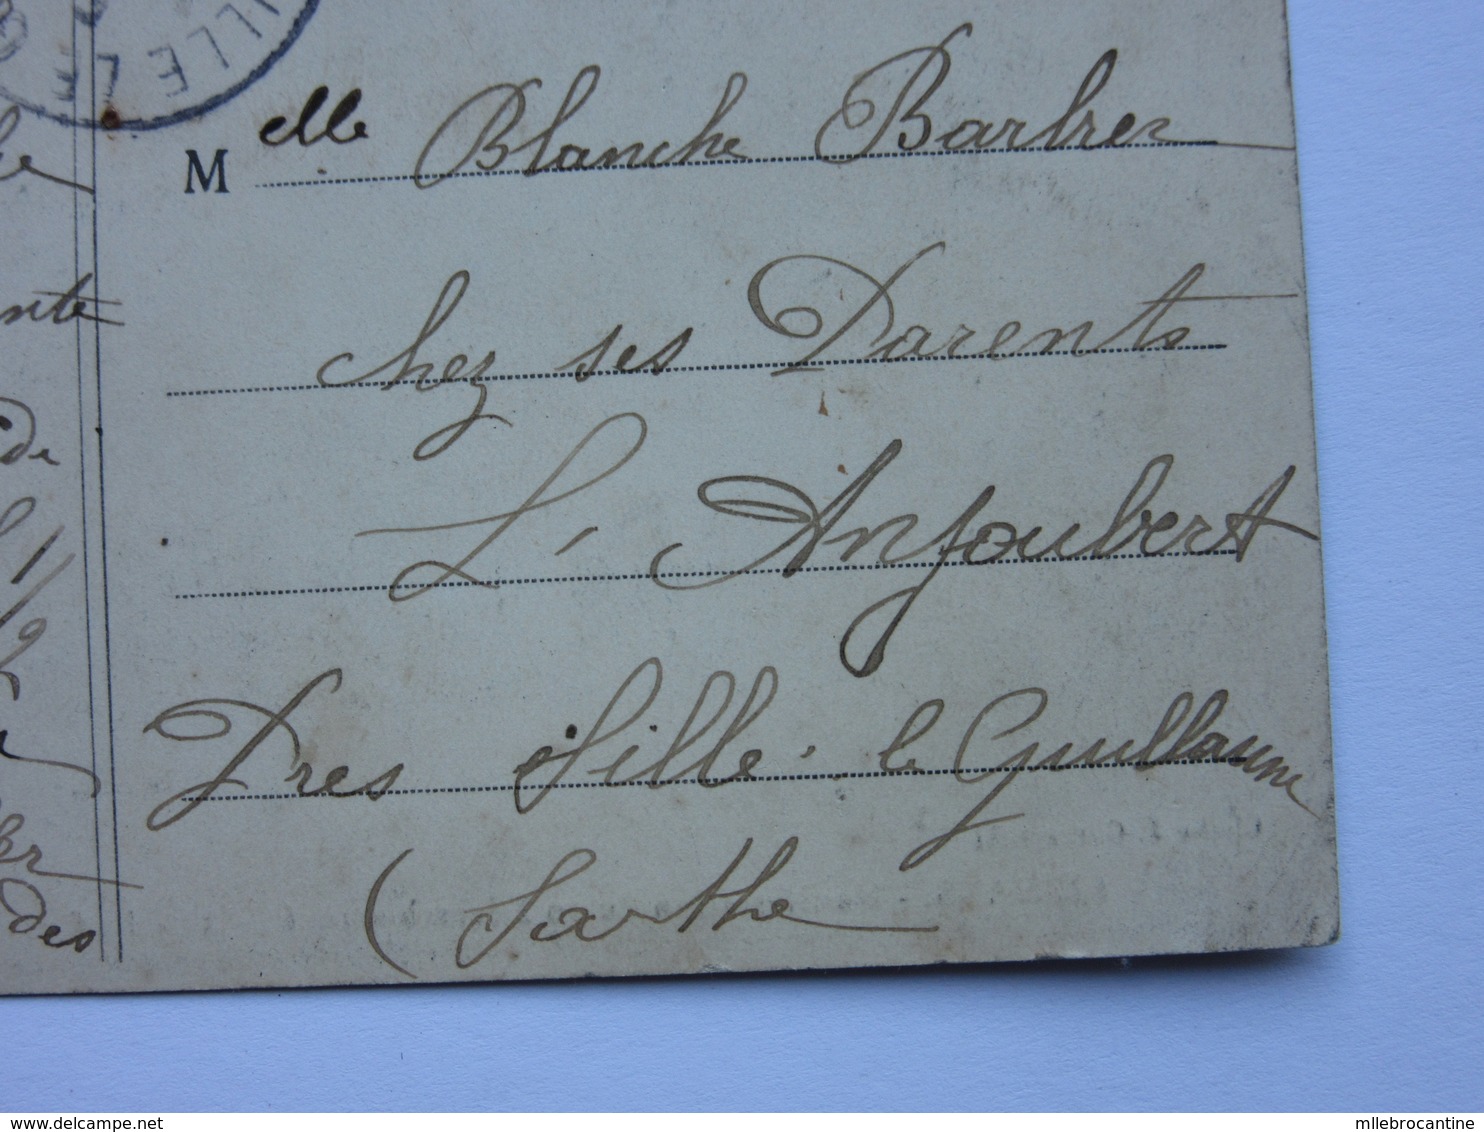 ILLE LE
Melle Blanche Barbier
chez ses Parents
L'Anjoubert
Près Sillé le Guillaume
(Sarthe
nte
de
1/
/2
des
www.delcampe.net
mllebrocantine